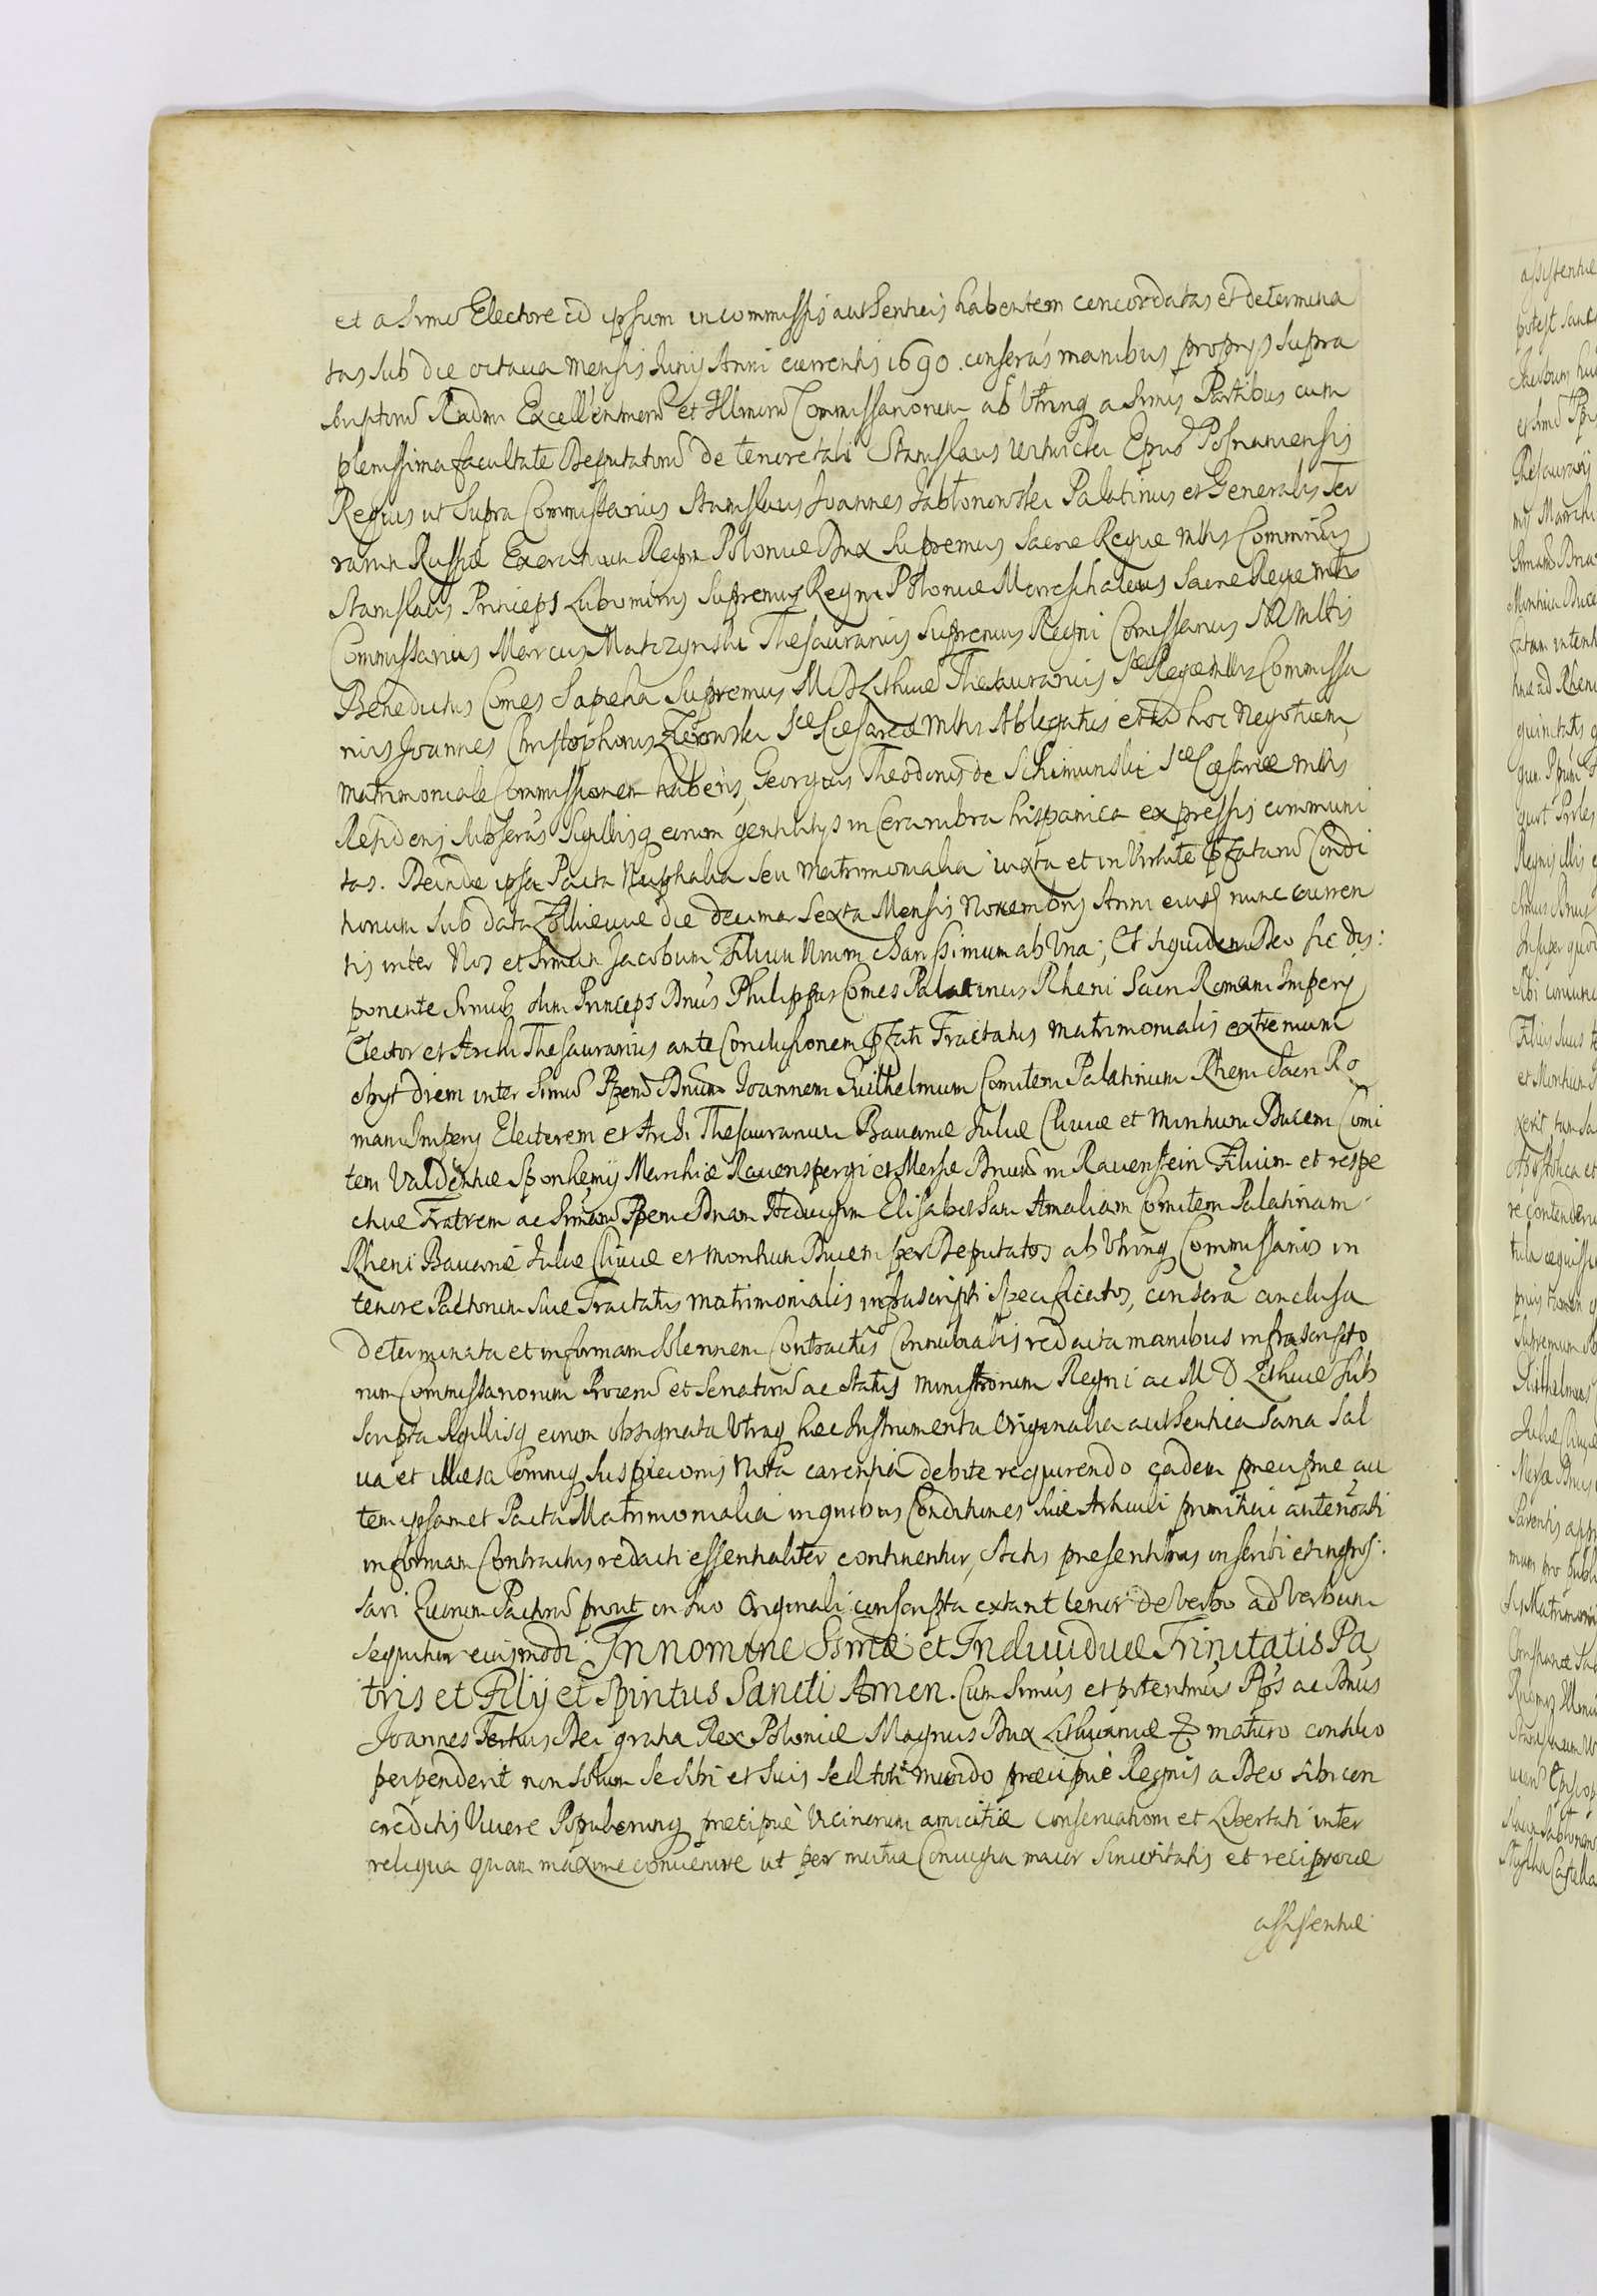 et a Srmo Electore id ipsum in commissis authenticis habentem concordatas et determina
tas sub die octaua mensis Junij Anni currentis 1690. conscrãs manibus proprijs supra
scriptorũ Rndmi Excellentmorũ et Illmorũ Commissariorum ab Utrinq a Srmis Partibus cum
plenissima facultate Deputatorũ de tenore tali Stanislaus Witwicki Epus Posnaniensis
Regius ut supra Commissarius Stanislaus Joannes Jabłonowski Palatinus et Generalis Ter
rarum Russiæ Exercituum Regni Poloniæ Dux Supremus Sacræ Regiæ Mttis Commrius
Stanislaus Princeps Lubomirus Supremus Regni Poloniæ Mareschalcus Sacræ Regiæ Mttis
Commissarius Marcus Matczynski Thesaurarius Supremus Regni Comissarius SRMttis
Benedictus Comes Sapieha Supremus MDLithuæ Thesaurarius Sæ Regiæ Mttis Commissa
rius Joannes Christophorus Zierowski Sæ Cæsareæ Mttis Ablegatus et ad hoc Negotium
Matrimoniale Commissionem habens, Georgius Theodorus de Schimunski Sæ Cæsareæ Mttis
Residens subscrãs Sigillisq eorum gentilitijs in Cera rubra hispanica expressis communi
tas. Deinde ipsa Pacta Nuptialia seu Matrimonialia iuxta et in Virtute pfatarũ Condi
tionum sub data Zolkieuiæ die decima Sexta Mensis Nouembris Anni eiusd nunc curren
tis inter Nos et Srmum Jacobum Filium Nrum charissimum ab Una; Et siquidem Deo sic dis:
ponente Srmus olim Princeps Dnus Philippus Comes Palatinus Rheni Sacri Romani Imperij
Elector et Archi Thesaurarius ante Conclusionem pfati Tractatus Matrimonialis extremum
obijt diem inter Srmũ Ppem Dnum Joannem Guilhelmum Comitem Palatinum Rheni Sacri Ro
mani Imperij Electorem et Archi Thesaurarium Bauariæ Juliæ Cliuiæ et Montium Ducem Comi
tem Valdentiæ Sponhemij Marchiæ Rauenspergi et Mersæ Dnum in Rauenstein Filium et respe
ctiue Fratrem ac Srmam Ppem Dnam Heduigim Elisabetham Amaliam Comitem Palatinam
Rheni Bauariæ Juliæ Cliuiæ et Montium Ducem per Deputatos ab Utrinq Commissarios in
tenore Pactorum siue Tractatus Matrimonialis infrascripti specificatos, conscrã conclusa
determinata et in formam solennem Contractus Connubialis redacta manibus infrascripto
rum Commissariorum Procerũ et Senatorũ ac Status Ministrorum Regni ac M D Lithuæ sub
scripta Sigillisq eorum obsignata Utraq hæc Instrumenta Originalia authentica sana sal
ua et illæsa omniq suspicionis Nota carentia debite requirendo eadem præcipue au
tem ipsamet Pacta Matrimonialia in quibus Conditiones siue Articuli primitiui antenõati
in formam Contractus redacti essentialiter continentur, Actis præsentibus inscribi et ingros:
sari Quorum Pactorũ prout in suo Originali conscripta extant tenor de Verbo ad Verbum
sequitur eiusmodi. In nomine SSmæ et Indiuiduæ Trinitatis Pa
tris et Filij et Spiritus Sancti Amen. Cum Srmus et potentmus Pps ac Dnus
Joannes Tertius Dei gratia Rex Poloniæ Magnus Dux Lithuaniæ & maturo consilio
perpenderit non solum se sibi et suis sed toti mundo præcipuè Regnis a Deo sibi con
creditis Viuere Populorumq præcipuè Vicinorum amicitiæ conseruationi et Libertati inter
reliqua quam maxime conuenire ut per mutua Coniugia maior sinceritatis et reciprocæ
assistentiæ